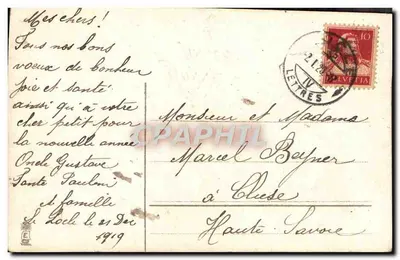 Mes chers!
Tous nos bons
voeux de bonheur
joie et santé
ainsi qu'à votre
cher petit pour
la nouvelle année
Oncle Gustave
Tante Pauline
et famille
Le Locle le 21 Dec
1919
10
HELVETIA
IV
LETTRES
Monsieur et Madame
Marcel Beyner
à Cluse
Haute Savoie
DELCAMPHILA